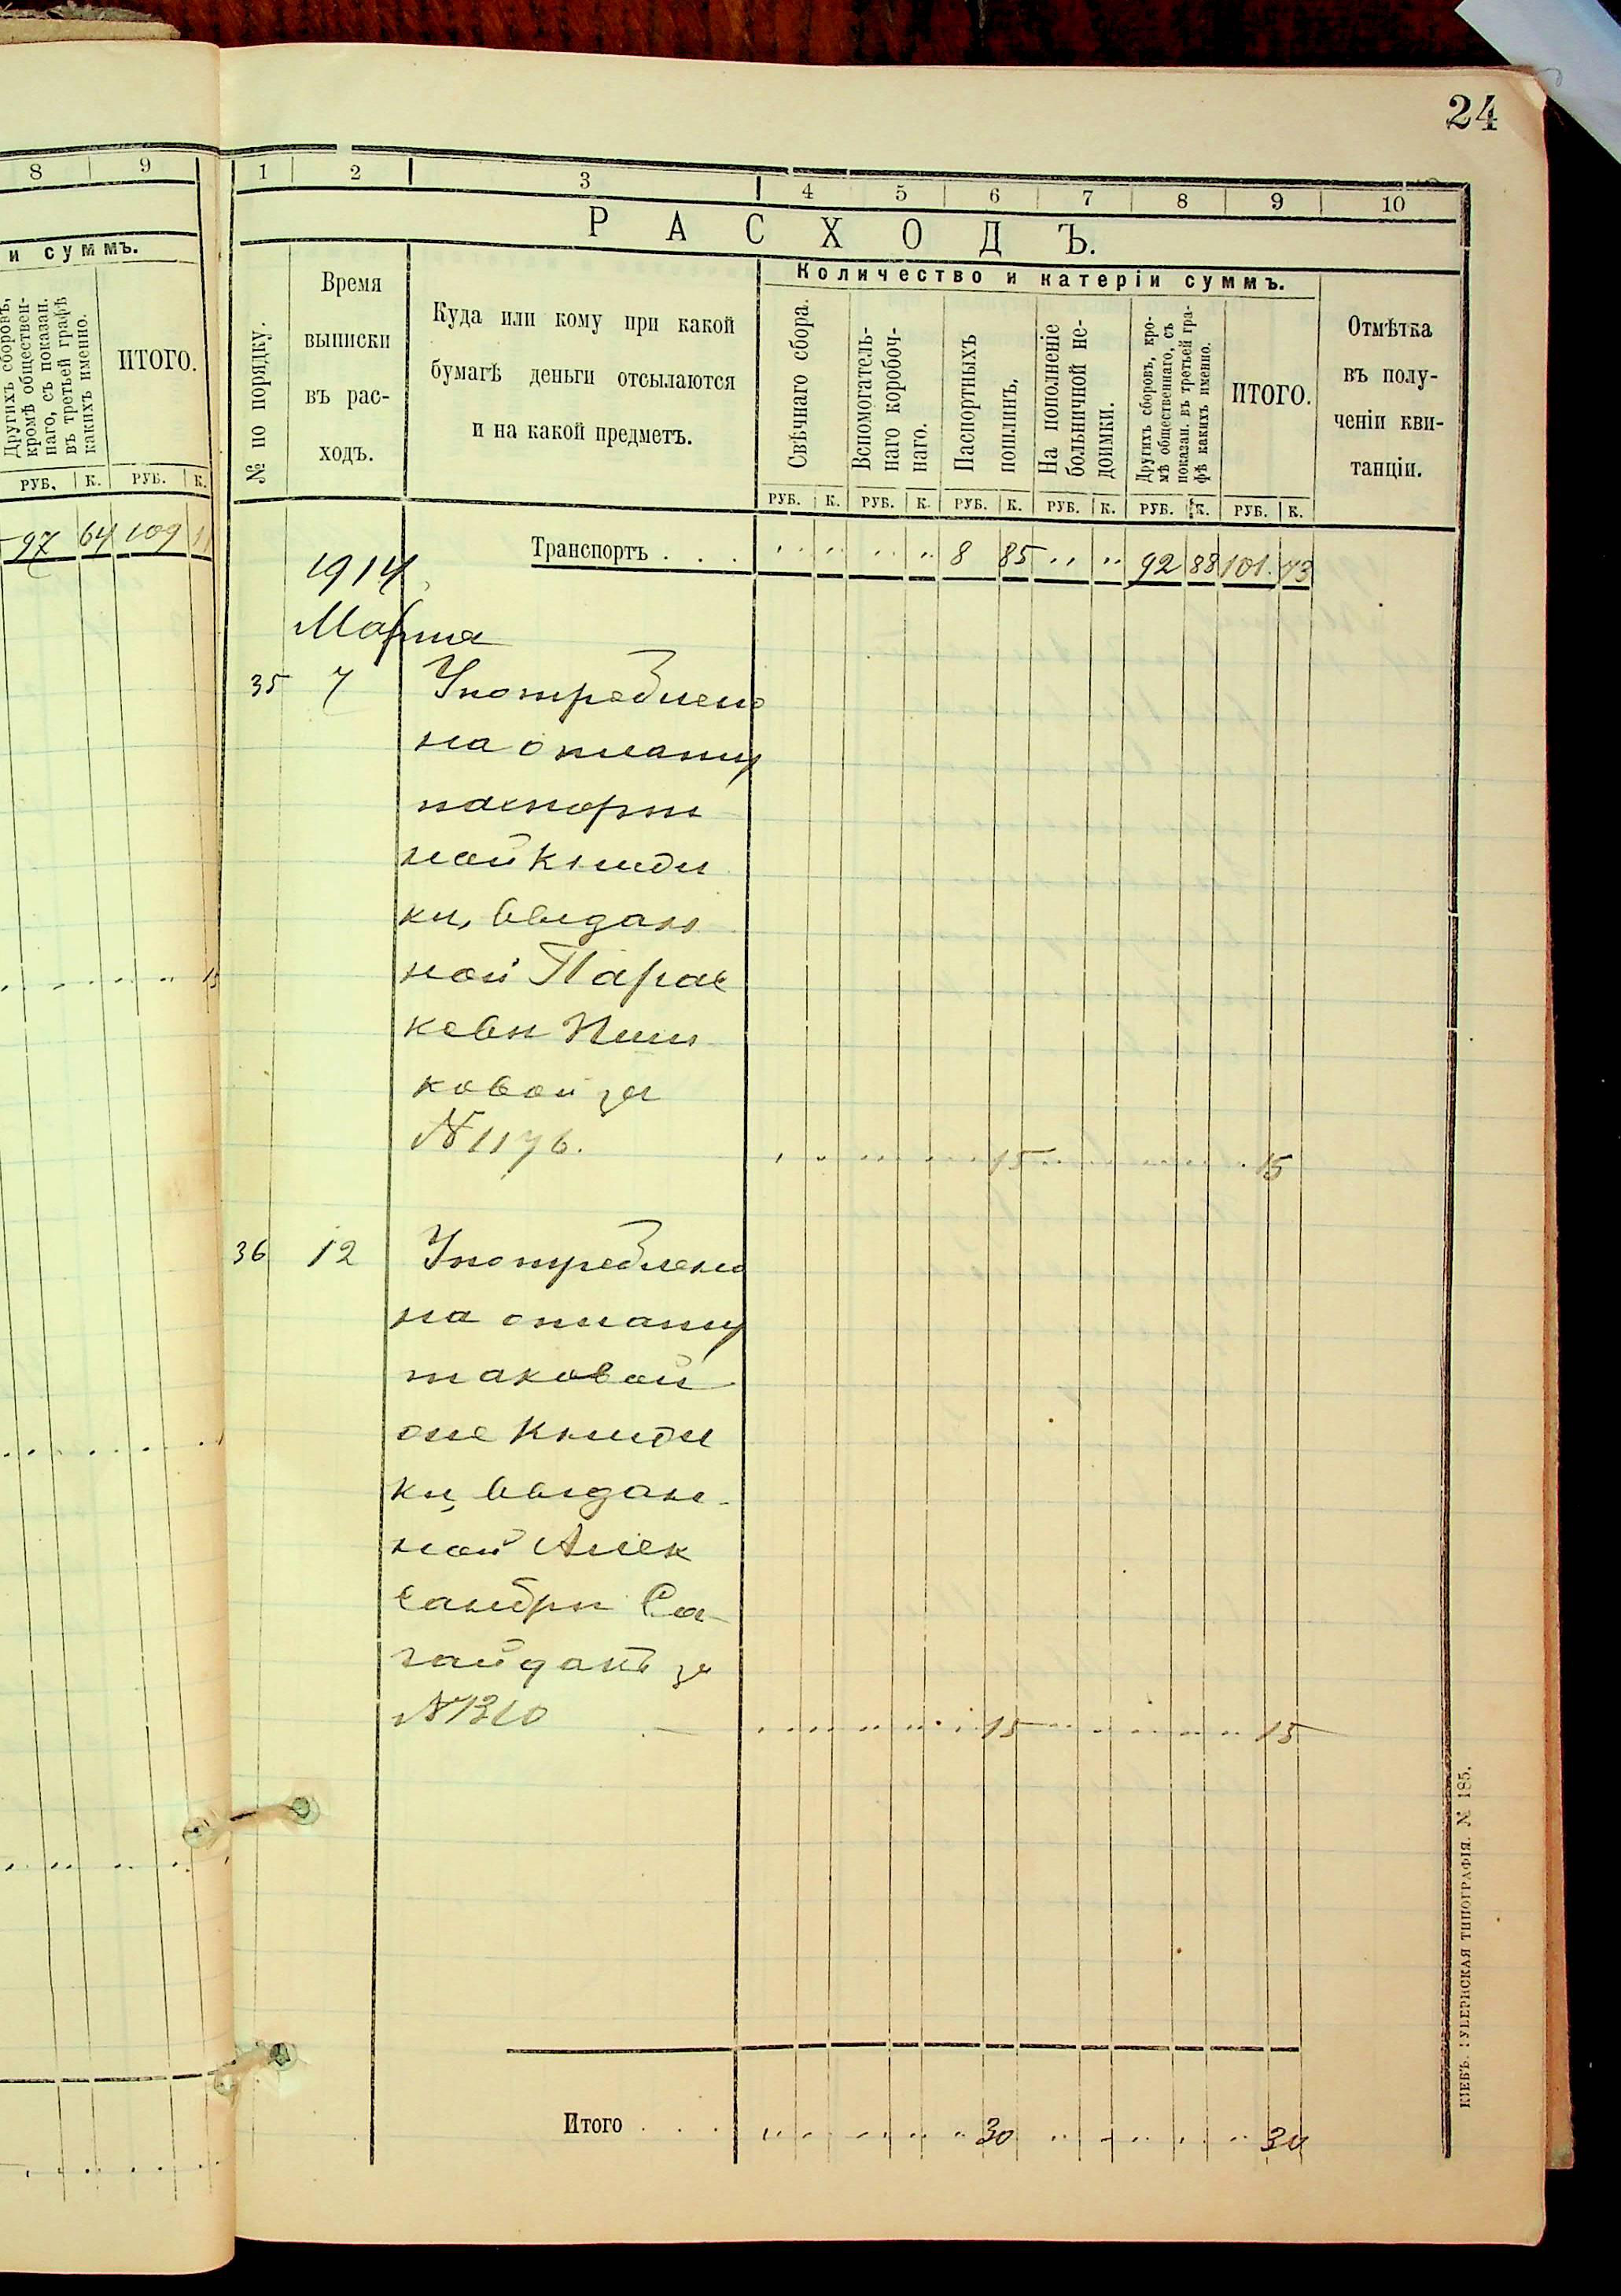 24
8 9
и суммъ.
Другихъ сборовъ,
кромѣ обществен-
наго, съ показан.
въ третьей графѣ
какихъ именно.
ИТОГО.
РУБ. К. РУБ. К.
97 64 109 11
15
1 2 3 4 5 6 7 8 9 10
РАСХОДЪ.
№ по порядку.
Время
выписки
въ рас-
ходъ.
Куда или кому при какой
бумагѣ деньги отсылаются
и на какой предметъ.
Количество и катеріи суммъ.
Свѣчнаго сбора.
Вспомогатель-
наго коробоч-
наго.
Паспортныхъ
пошлинъ.
На пополненіе
больничной не-
доимки.
Другихъ сборовъ, кро-
мѣ общественнаго, съ
показан. въ третьей гра-
фѣ какихъ именно.
ИТОГО.
Отмѣтка
въ полу-
ченіи кви-
танціи.
РУБ. К. РУБ. К. РУБ. К. РУБ. К. РУБ. К. РУБ. К.
Транспортъ . . . " " " " 8 85 " " 92 88 101 73
1914
Марта
35 7 Употреблено
на оплату
паспорт
ной книж
ки, выдан
ной Парас
кевы
ковой за
№ 1176. " " " " " 15 " " " " " 15
36 12 Употреблено
на оплату
таковой
же книж
ки, выдан-
ной Алек
сандры Са-
гайдакъ за
№ 1310 " " " " " 15 " " " " " 15
Итого . . . " " " " " 30 " " " " " 30
КІЕВЪ. ГУБЕРНСКАЯ ТИПОГРАФІЯ. № 185.